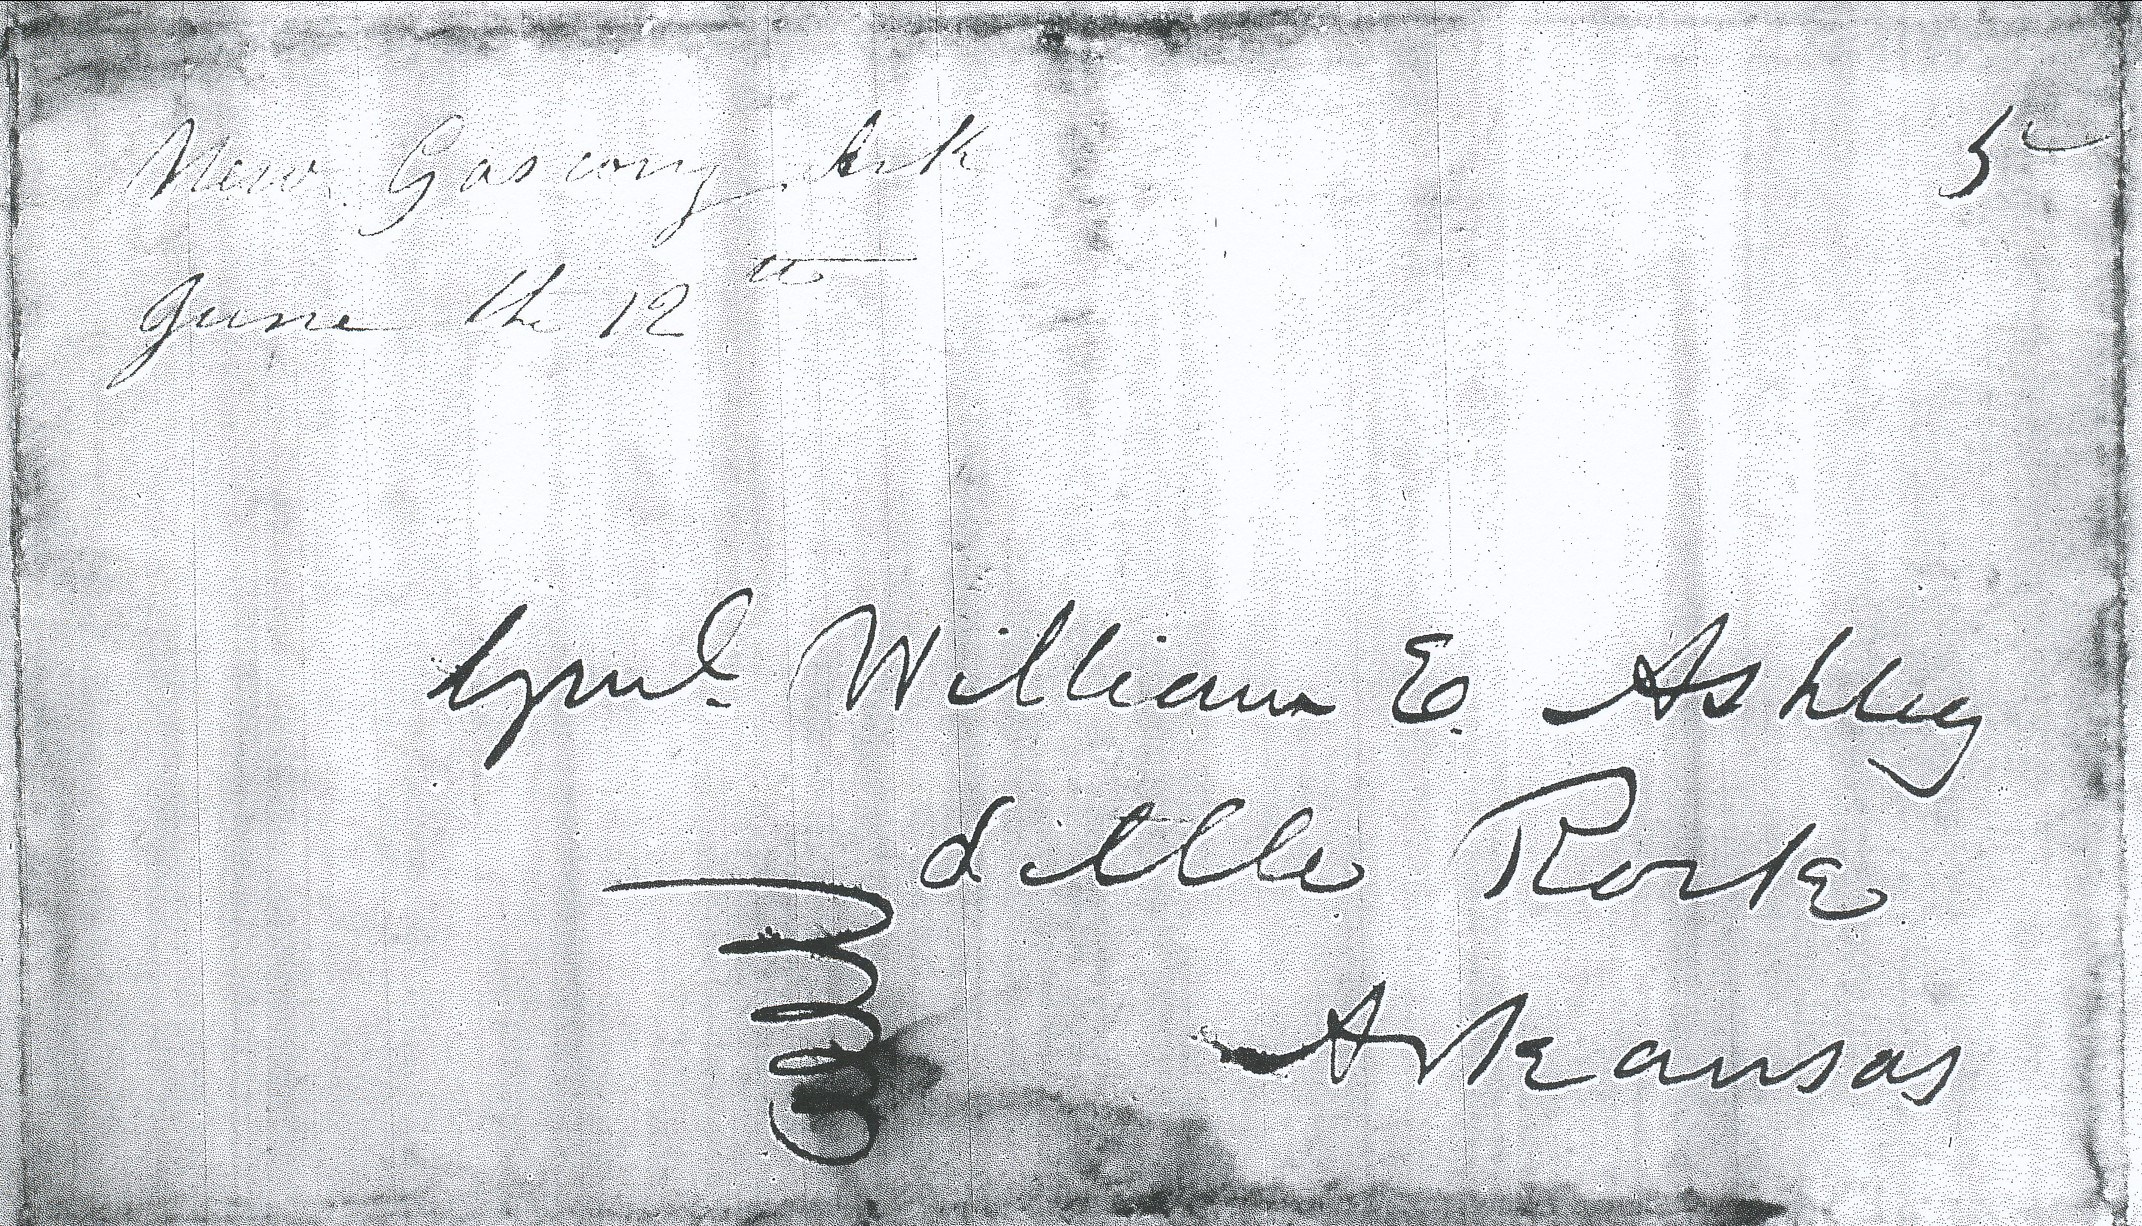 New Gascony Ark
5c
June the 12th
Genl. William E. Ashley
Little Rock
Arkansas